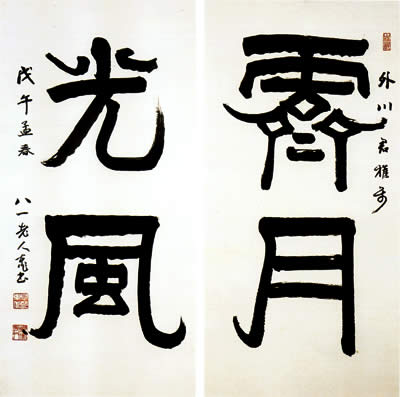 外川君雅
霽月
光風
戊午孟春
八一老人